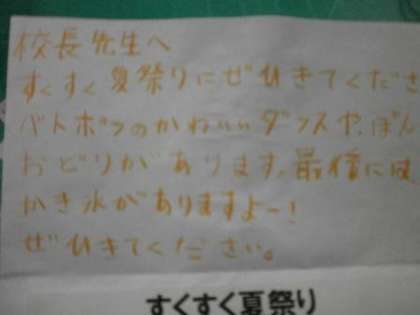 校長先生へ
すくすく夏祭りにぜひきてくださ
バトポンのかわいいダンスや、ぼん
おどりがあります。最後には、
かき氷がありますよー!
ぜひきてください。
すくすく夏祭り